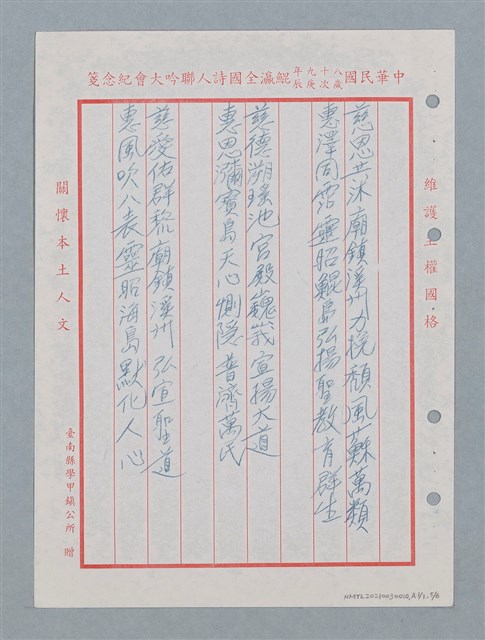 中華民國八十九年歲次庚辰鯤瀛全國詩人聯吟大會紀念箋
維護主權國格
慈恩共沐廟鎮溪州力挽頹風蘇萬類
惠澤同霑靈昭鯤島弘揚聖教育群生
慈德溯瑤池宮殿巍峩宣揚大道
惠恩瀰寶島天心惻隱普濟萬民
慈愛佑群黎廟鎮溪州弘宣聖道
惠風吹八表靈昭海島默化人心
關懷本土人文
臺南縣學甲鎮公所 贈
NMTL20210030010,A1/1,5/6